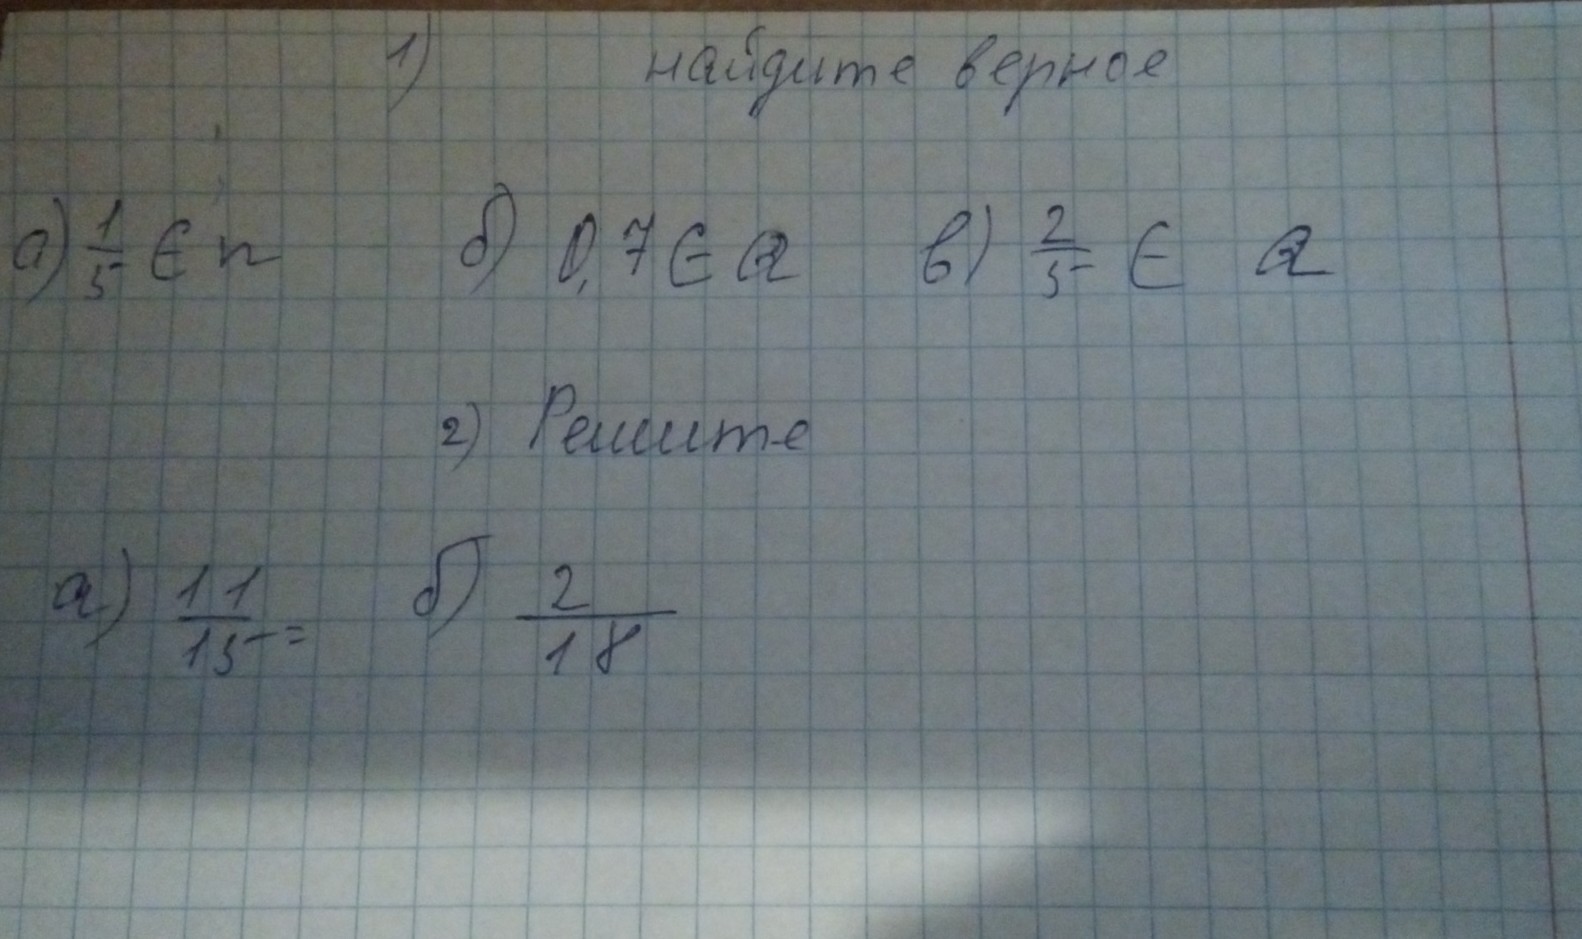 1) найдите верное
а) 1/5 ∈ n б) 0,7 ∈ Q в) 2/5 ∈ Q
2) Решите
а) 11/15 = б) 2/18